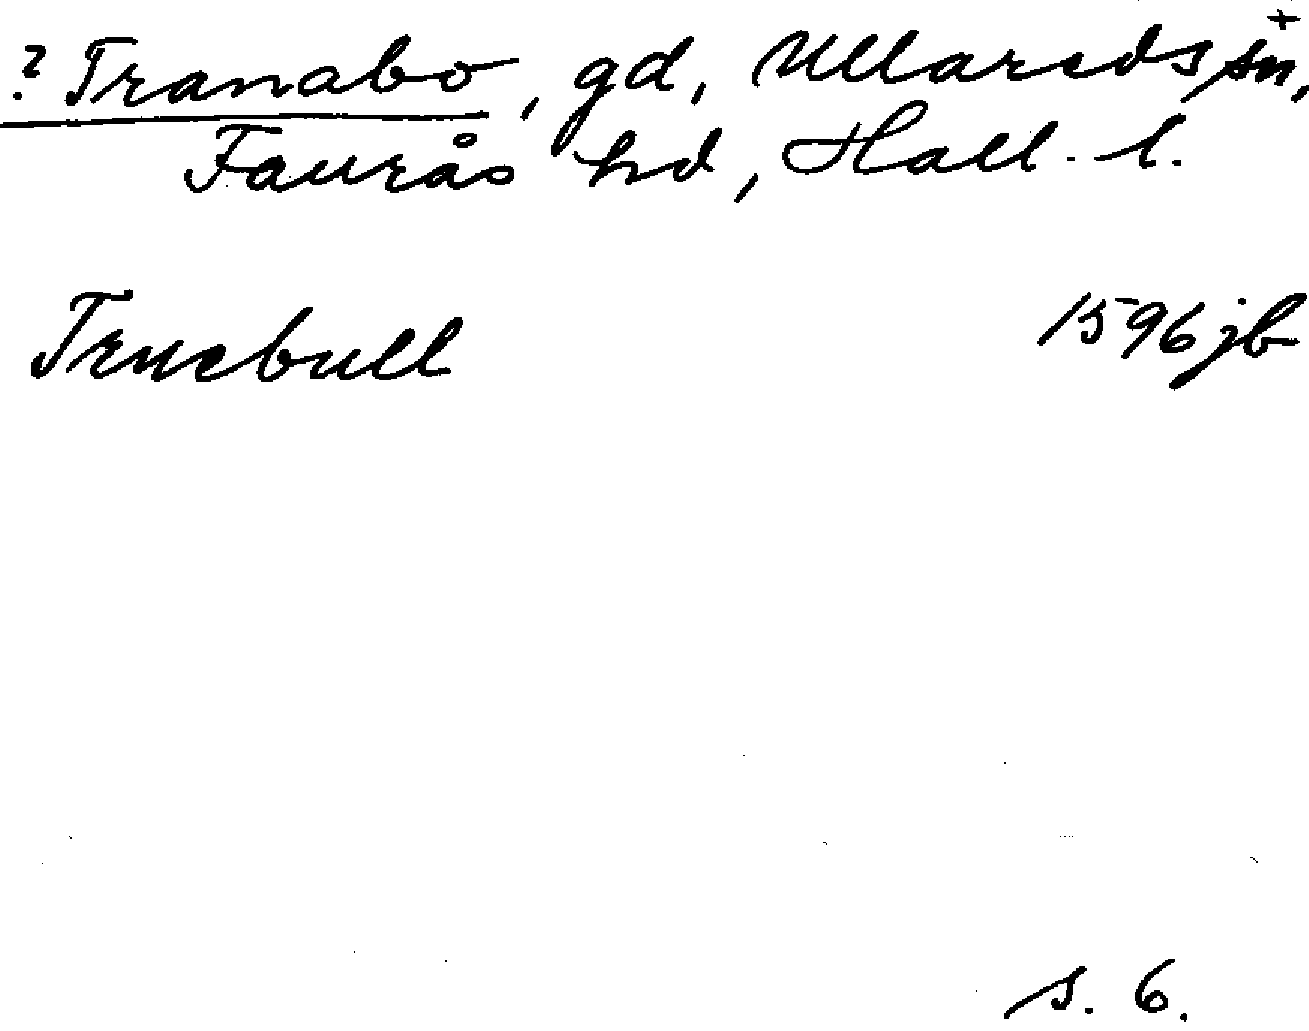 ? Tranabo, gd, Ullareds sn, +
Faurås hd, Hall. l.
Trnebull 1596 jb
s. 6.